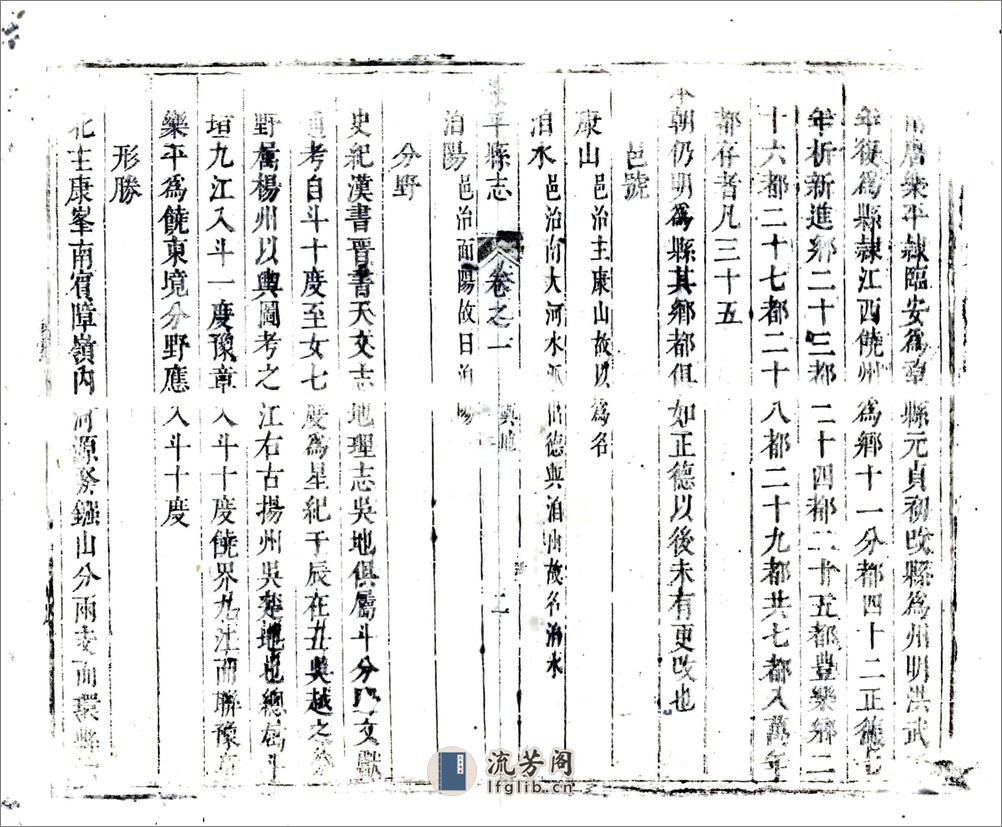 唐樂平隷臨安爲章縣元貞初改縣爲州明洪武
年復爲縣隷江西饒州爲鄉十一分都四十二正德七
年析新進鄉二十三都二十四都二十五都豐樂鄉二
十六都二十七都二十八都二十九都共七都入萬年
都存者凡三十五
本朝仍明爲縣其鄉都俱如正德以後未有更改也
邑號
康山邑治主康山故以爲名
洎水邑治南大河水派出德興洎山故名洎水
平縣志 卷之一 二
洎陽邑治面陽故曰洎陽
分野
史紀漢書晋書天文志地理志吳地俱屬斗分文獻
通考自斗十度至女七度爲星紀于辰在丑吳越之分
野屬楊州以輿圖考之江右古揚州吳楚地也總屬斗
垣九江入斗一度豫章入斗十度饒界九江而聯豫章
樂平爲饒東境分野應入斗十度
形勝
北主康峯南賓障嶺內河源發鏹山分兩支而環
流芳阁
lfglib.cn